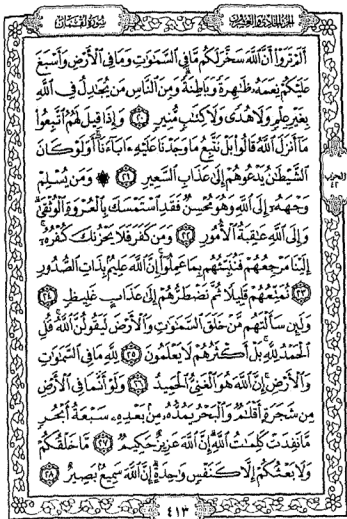 الجزء الحادي والعشرون
سورة لقمان
أَلَمْ تَرَوْا أَنَّ اللَّهَ سَخَّرَ لَكُم مَّا فِي السَّمَاوَاتِ وَمَا فِي الْأَرْضِ وَأَسْبَغَ
عَلَيْكُمْ نِعَمَهُ ظَاهِرَةً وَبَاطِنَةً وَمِنَ النَّاسِ مَن يُجَادِلُ فِي اللَّهِ
بِغَيْرِ عِلْمٍ وَلَا هُدًى وَلَا كِتَابٍ مُّنِيرٍ ٢٠ وَإِذَا قِيلَ لَهُمُ اتَّبِعُوا
مَا أَنزَلَ اللَّهُ قَالُوا بَلْ نَتَّبِعُ مَا وَجَدْنَا عَلَيْهِ آبَاءَنَا أَوَلَوْ كَانَ
الشَّيْطَانُ يَدْعُوهُمْ إِلَى عَذَابِ السَّعِيرِ ٢١ ۞ وَمَن يُسْلِمْ
وَجْهَهُ إِلَى اللَّهِ وَهُوَ مُحْسِنٌ فَقَدِ اسْتَمْسَكَ بِالْعُرْوَةِ الْوُثْقَى
وَإِلَى اللَّهِ عَاقِبَةُ الْأُمُورِ ٢٢ وَمَن كَفَرَ فَلَا يَحْزُنكَ كُفْرُهُ
إِلَيْنَا مَرْجِعُهُمْ فَنُنَبِّئُهُم بِمَا عَمِلُوا إِنَّ اللَّهَ عَلِيمٌ بِذَاتِ الصُّدُورِ
٢٣ نُمَتِّعُهُمْ قَلِيلًا ثُمَّ نَضْطَرُّهُمْ إِلَى عَذَابٍ غَلِيظٍ ٢٤
وَلَئِن سَأَلْتَهُم مَّنْ خَلَقَ السَّمَاوَاتِ وَالْأَرْضَ لَيَقُولُنَّ اللَّهُ قُلِ
الْحَمْدُ لِلَّهِ بَلْ أَكْثَرُهُمْ لَا يَعْلَمُونَ ٢٥ لِلَّهِ مَا فِي السَّمَاوَاتِ
وَالْأَرْضِ إِنَّ اللَّهَ هُوَ الْغَنِيُّ الْحَمِيدُ ٢٦ وَلَوْ أَنَّمَا فِي الْأَرْضِ
مِن شَجَرَةٍ أَقْلَامٌ وَالْبَحْرُ يَمُدُّهُ مِن بَعْدِهِ سَبْعَةُ أَبْحُرٍ
مَّا نَفِدَتْ كَلِمَاتُ اللَّهِ إِنَّ اللَّهَ عَزِيزٌ حَكِيمٌ ٢٧ مَّا خَلْقُكُمْ
وَلَا بَعْثُكُمْ إِلَّا كَنَفْسٍ وَاحِدَةٍ إِنَّ اللَّهَ سَمِيعٌ بَصِيرٌ ٢٨
الحزب
٤٢
٤١٣